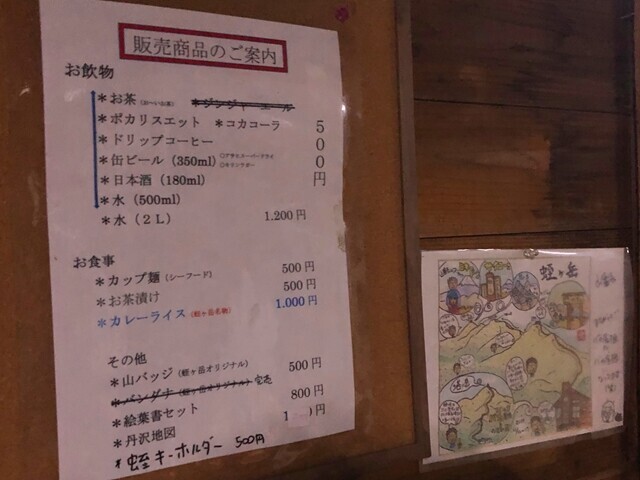 販売商品のご案内
お飲物
＊お茶（お～いお茶） ＊ジンジャーエール
＊ポカリスエット ＊コカコーラ
＊ドリップコーヒー
＊缶ビール（350ml）○アサヒスーパードライ
＊日本酒（180ml）
＊水（500ml）
500円
＊水（２Ｌ） 1.200円
お食事
＊カップ麺（シーフード） 500円
＊お茶漬け 500円
＊カレーライス（蛭ヶ岳名物） 1.000円
その他
＊山バッジ（蛭ヶ岳オリジナル） 500円
＊バンダナ（蛭ヶ岳オリジナル）完売
＊絵葉書セット 800円
＊丹沢地図
＊蛭キーホルダー 500円
蛭ヶ岳